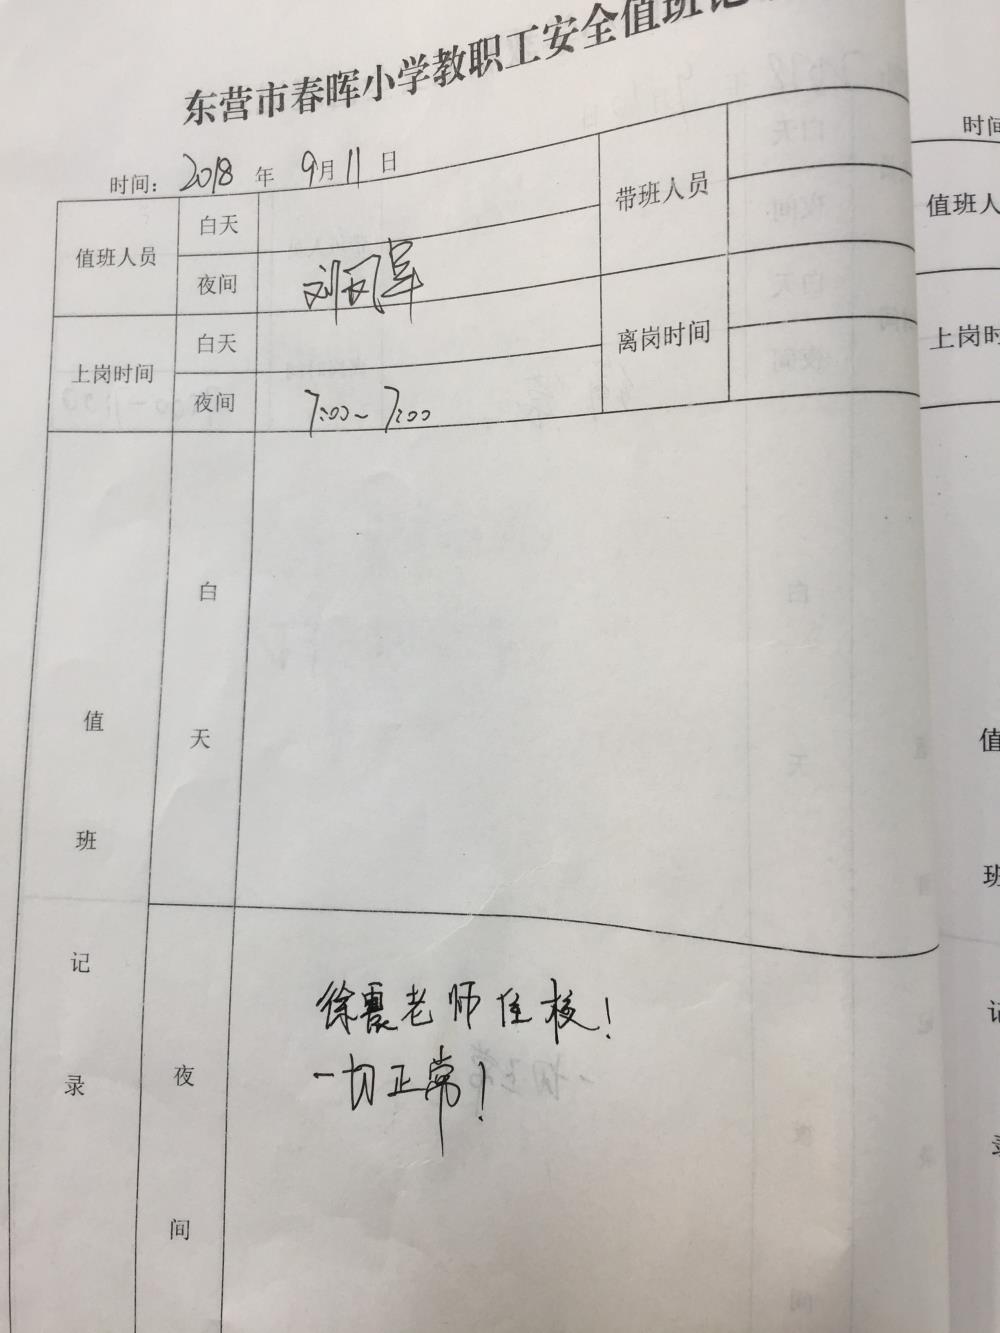 东营市春晖小学教职工安全值班记
时间： 2018 年 9月11日
值班人员 白天 带班人员
夜间 刘凤军
上岗时间 白天 离岗时间
夜间 7:00~7:00
值班记录
白天
夜间
徐震老师住校！
一切正常！
时间
值班人
上岗时
值
班
记
录